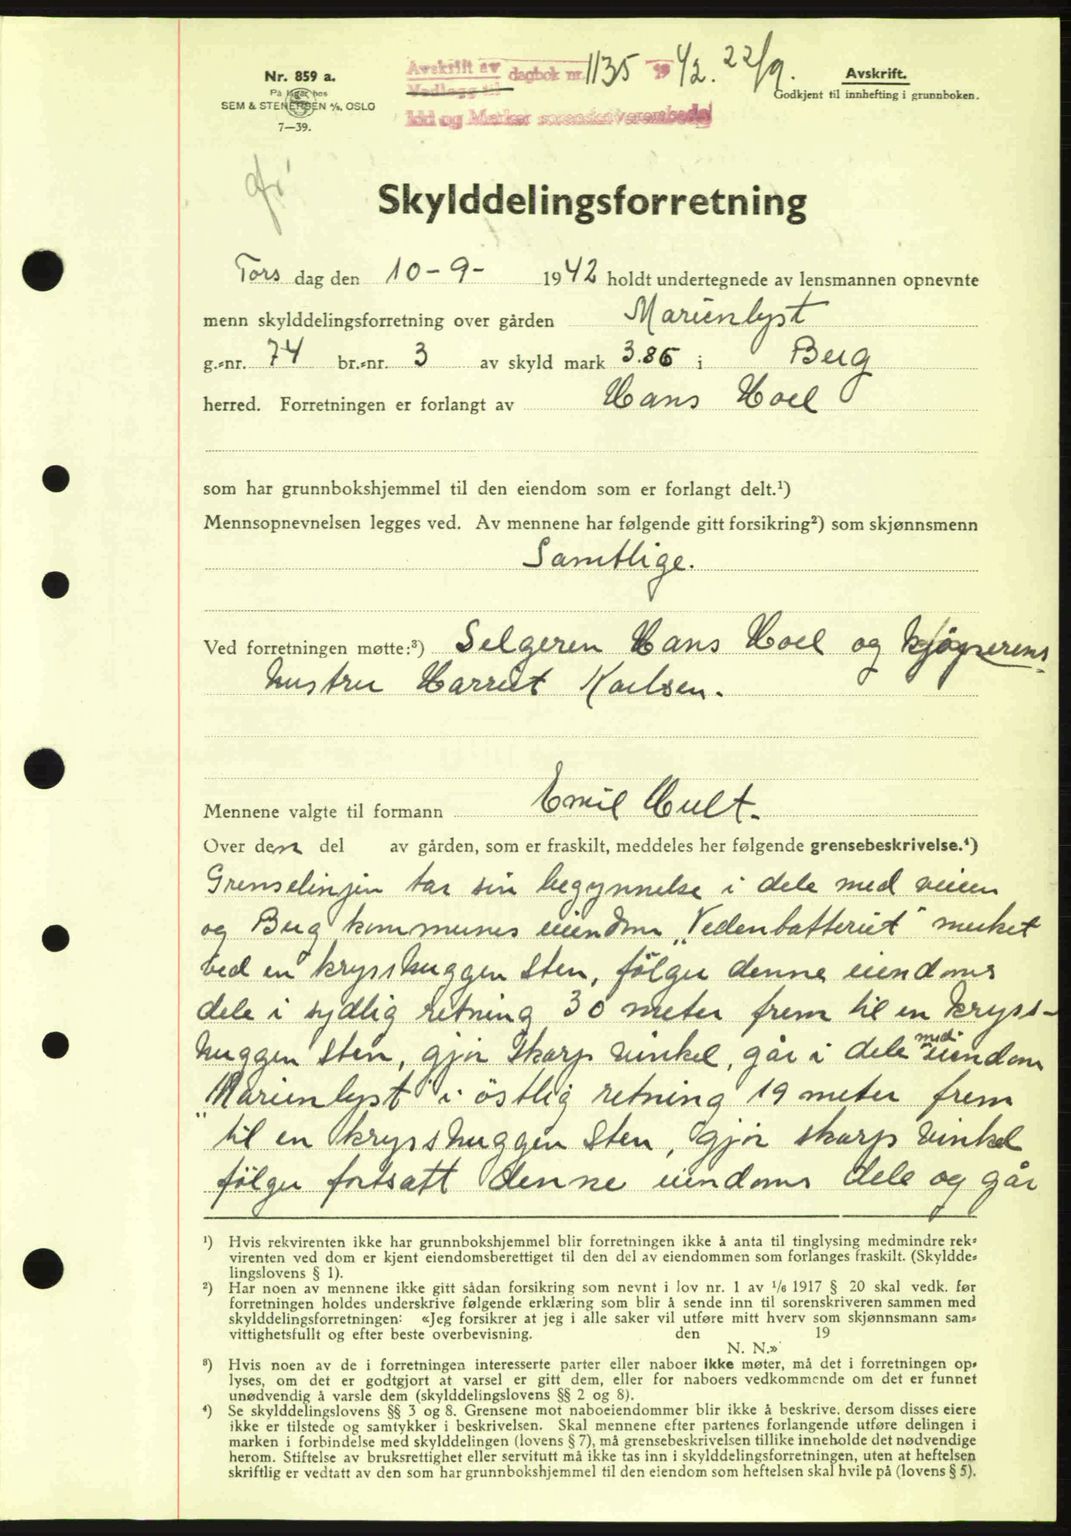 Nr. 859 a.
På lager hos
SEM & STENERSEN A/S, OSLO
7—39.
Avskrift av
Vedlegg til
dagbok nr. 1135 1942. 22/9.
Idd og Marker sorenskriverembede
Avskrift.
Godkjent til innhefting i grunnboken.
Skylddelingsforretning
Tors dag den 10-9- 1942 holdt undertegnede av lensmannen opnevnte
menn skylddelingsforretning over gården Marienlyst
g.-nr. 74 br.-nr. 3 av skyld mark 3.86 i Berg
herred. Forretningen er forlangt av Hans Hoel
som har grunnbokshjemmel til den eiendom som er forlangt delt.¹)
Mennsopnevnelsen legges ved. Av mennene har følgende gitt forsikring²) som skjønnsmenn
Samtlige.
Ved forretningen møtte:³) Selgeren Hans Hoel og kjøperens
hustru Harriet Karlsen.
Mennene valgte til formann Emil Hult.
Over den del av gården, som er fraskilt, meddeles her følgende grensebeskrivelse.⁴)
Grenselinjen tar sin begynnelse i dele med veien
og Berg kommunes eiendom "Vedenbatteriet" merket
ved en krysshuggen Sten, følger denne eiendoms
dele i sydlig retning 30 meter frem til en kryss-
huggen Sten, gjør skarp vinkel, går i dele med eiendom
"Marienlyst" i östlig retning 19 meter frem
til en krysshuggen Sten, gjør skarp vinkel
følger fortsatt denne eiendoms dele og går
¹) Hvis rekvirenten ikke har grunnbokshjemmel blir forretningen ikke å anta til tinglysing medmindre rek-
virenten ved dom er kjent eiendomsberettiget til den del av eiendommen som forlanges fraskilt. (Skyldde-
lingslovens § 1).
²) Har noen av mennene ikke gitt sådan forsikring som nevnt i lov nr. 1 av 1/6 1917 § 20 skal vedk. før
forretningen holdes underskrive følgende erklæring som blir å sende inn til sorenskriveren sammen med
skylddelingsforretningen: «Jeg forsikrer at jeg i alle saker vil utføre mitt hverv som skjønnsmann sam-
vittighetsfullt og efter beste overbevisning. den 19
N. N.»
³) Hvis noen av de i forretningen interesserte parter eller naboer ikke møter, må det i forretningen op-
lyses, om det er godtgjort at varsel er gitt dem, eller for naboers vedkommende om det er funnet
unødvendig å varsle dem (skylddelingslovens §§ 2 og 8).
⁴) Se skylddelingslovens §§ 3 og 8. Grensene mot naboeiendommer blir ikke å beskrive, dersom disses eiere
ikke er tilstede og samtykker i beskrivelsen. Skal mennene efter partenes forlangende utføre delingen i
marken i forbindelse med skylddelingen (lovens § 7), må grensebeskrivelsen tillike inneholde det nødvendige
herom. Stiftelse av bruksrettighet eller servitutt må ikke tas inn i skylddelingsforretningen, uten at heftelsen
skriftlig er vedtatt av den som har grunnbokshjemmel til den eiendom som heftelsen skal hvile på (lovens § 5).